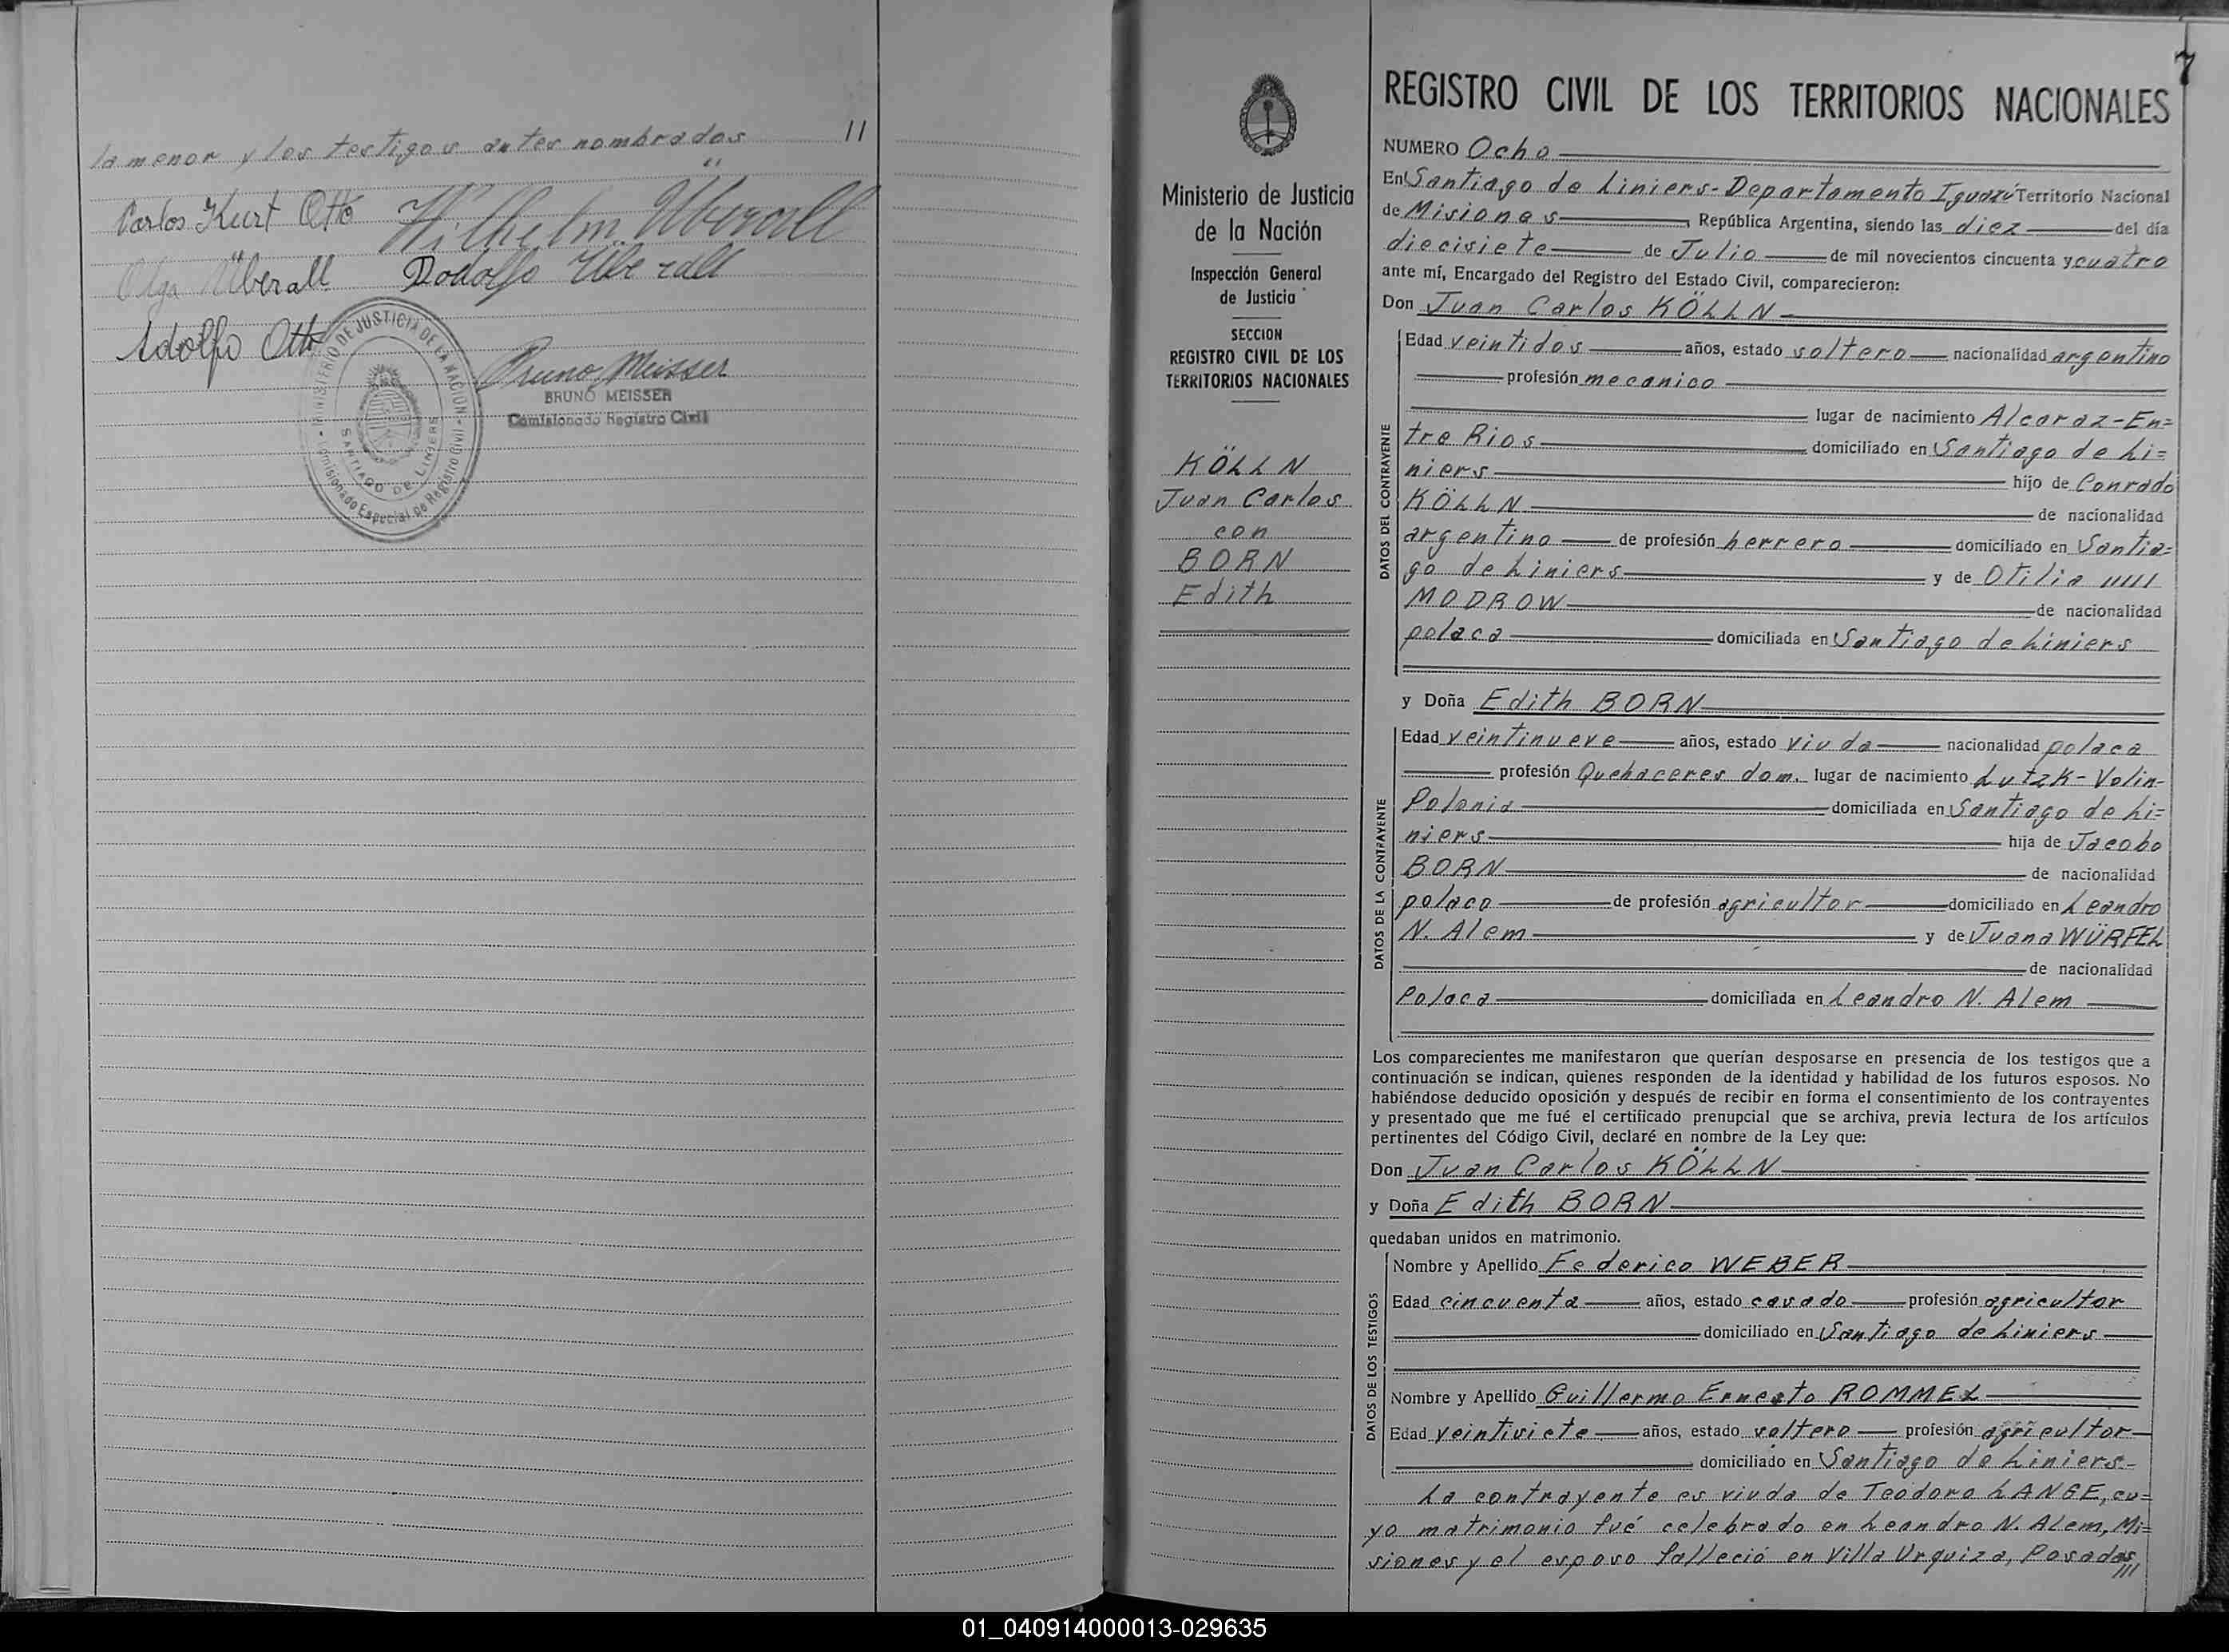 la menor y los testigos antes nombrados 11
Carlos Kurt Otto Wilhelm Überall
Olga Überall Rodolfo Überall
Adolfo Otto
Bruno Meisser
BRUNO MEISSER
Comisionado Registro Civil
MINISTERIO DE JUSTICIA DE LA NACION
SANTIAGO DE LINIERS
Comisionado Especial de Registro Civil
Ministerio de Justicia
de la Nación
Inspección General
de Justicia
SECCION
REGISTRO CIVIL DE LOS
TERRITORIOS NACIONALES
KÖLLN
Juan Carlos
con
BORN
Edith
7
REGISTRO CIVIL DE LOS TERRITORIOS NACIONALES
NUMERO Ocho
En Santiago de Liniers-Departamento Iguazú Territorio Nacional
de Misiones, República Argentina, siendo las diez del día
diecisiete de Julio de mil novecientos cincuenta y cuatro
ante mí, Encargado del Registro del Estado Civil, comparecieron:
Don Juan Carlos KÖLLN
DATOS DEL CONTRAYENTE
Edad veintidos años, estado soltero nacionalidad argentino
profesión mecanico
lugar de nacimiento Alcaraz-En=
tre Rios domiciliado en Santiago de Li=
niers hijo de Conrado
KÖLLN de nacionalidad
argentino de profesión herrero domiciliado en Santia=
go de Liniers y de Otilia
MODROW de nacionalidad
polaca domiciliada en Santiago de Liniers
y Doña Edith BORN
DATOS DE LA CONTRAYENTE
Edad veintinueve años, estado viuda nacionalidad polaca
profesión Quehaceres dom. lugar de nacimiento Lutzk-Volin-
Polonia domiciliada en Santiago de Li=
niers hija de Jacobo
BORN de nacionalidad
polaco de profesión agricultor domiciliado en Leandro
N. Alem y de Juana WÜRFEL
de nacionalidad
Polaca domiciliada en Leandro N. Alem
Los comparecientes me manifestaron que querían desposarse en presencia de los testigos que a
continuación se indican, quienes responden de la identidad y habilidad de los futuros esposos. No
habiéndose deducido oposición y después de recibir en forma el consentimiento de los contrayentes
y presentado que me fué el certificado prenupcial que se archiva, previa lectura de los artículos
pertinentes del Código Civil, declaré en nombre de la Ley que:
Don Juan Carlos KÖLLN
y Doña Edith BORN
quedaban unidos en matrimonio.
DATOS DE LOS TESTIGOS
Nombre y Apellido Federico WEBER
Edad cincuenta años, estado casado profesión agricultor
domiciliado en Santiago de Liniers
Nombre y Apellido Guillermo Ernesto ROMMEL
Edad veintisiete años, estado soltero profesión agricultor
domiciliado en Santiago de Liniers-
La contrayente es viuda de Teodoro LANGE, cu=
yo matrimonio fué celebrado en Leandro N. Alem, Mi=
siones y el esposo falleció en Villa Urquiza, Posadas
///
01_040914000013-029635